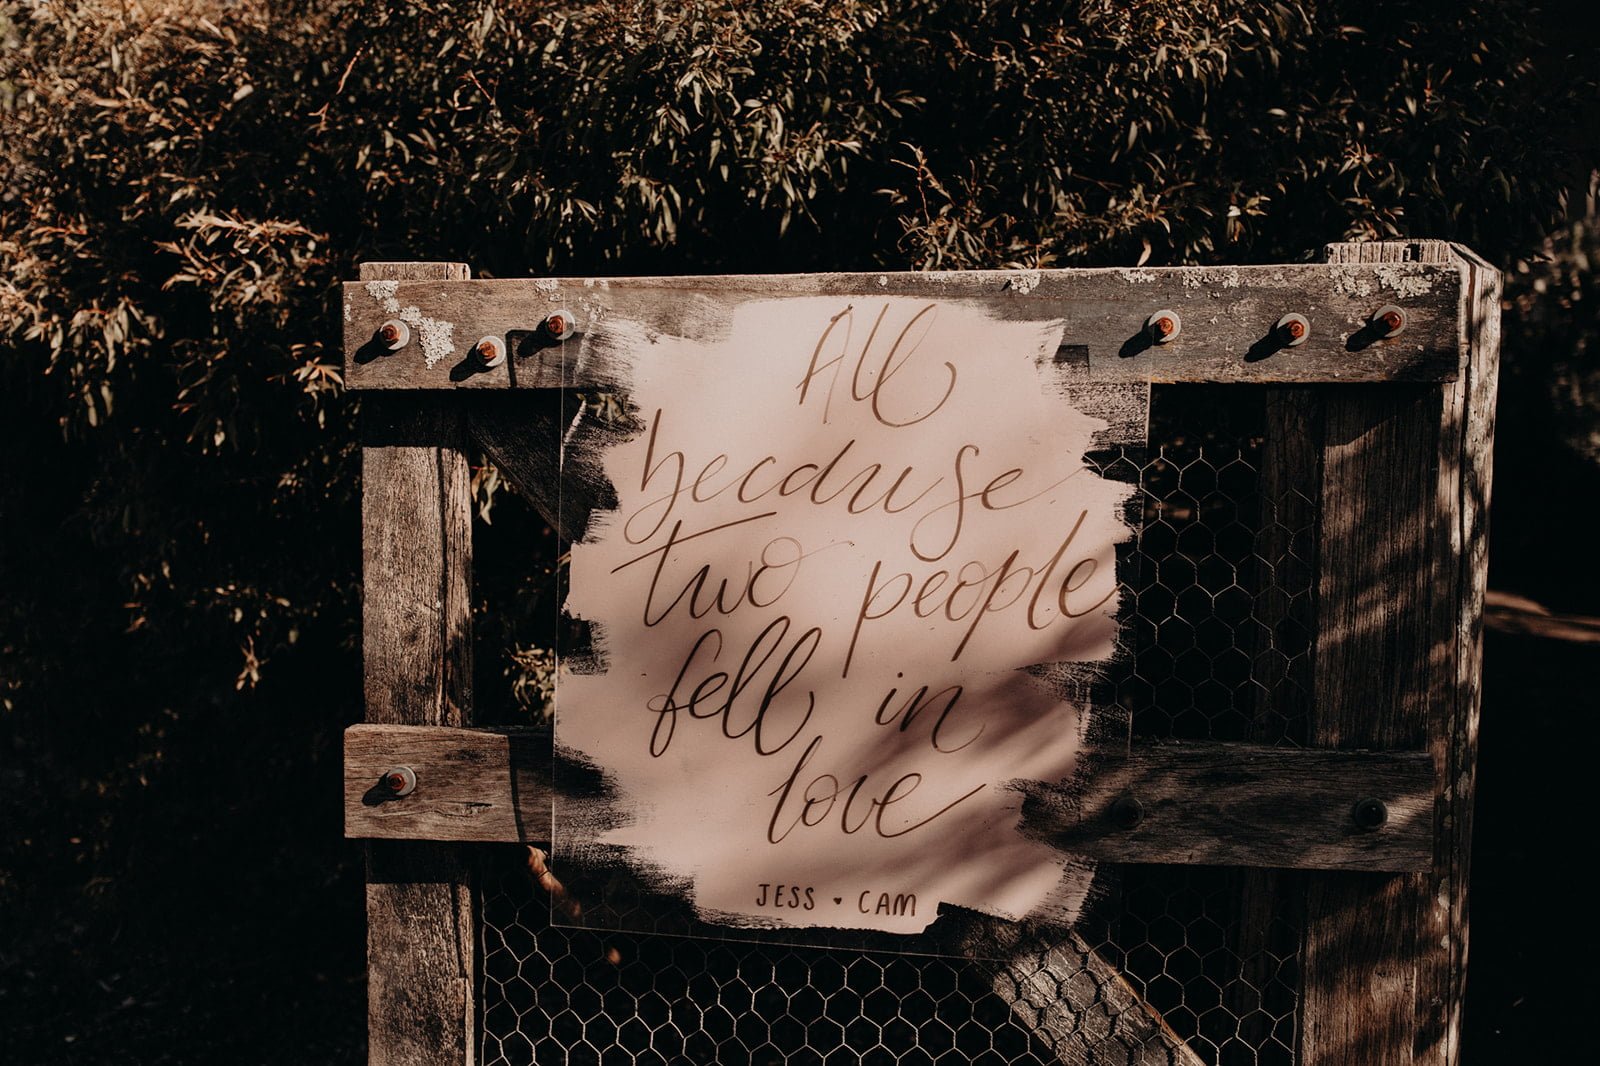 All
because
two people
fell in
love
JESS ♥ CAM